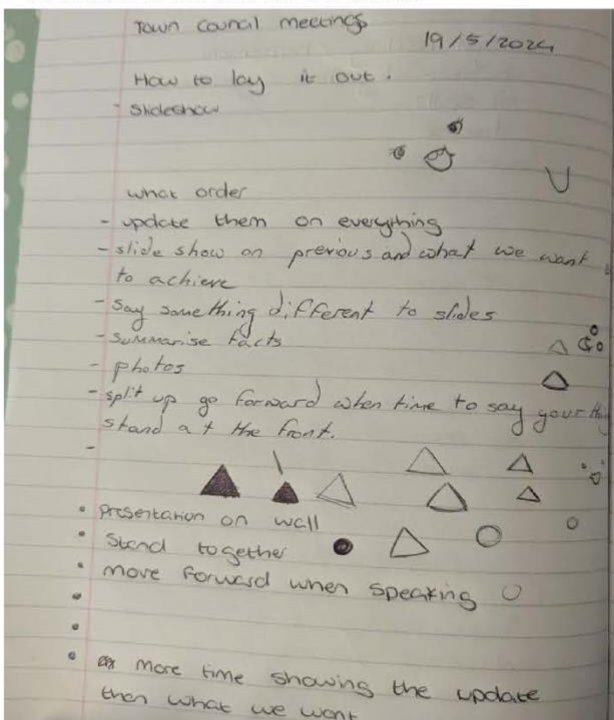 Town council meetings
19/5/2024
How to lay it out.
- Slideshow
what order
- update them on everything
- slide show on previous and what we want
to achieve
- Say something different to slides
- Summarise facts
- photos
- split up go forward when time to say your
stand at the front.
-
• Presentation on wall
• Stand together
• move forward when speaking
•
•
• more time showing the update
then what we want